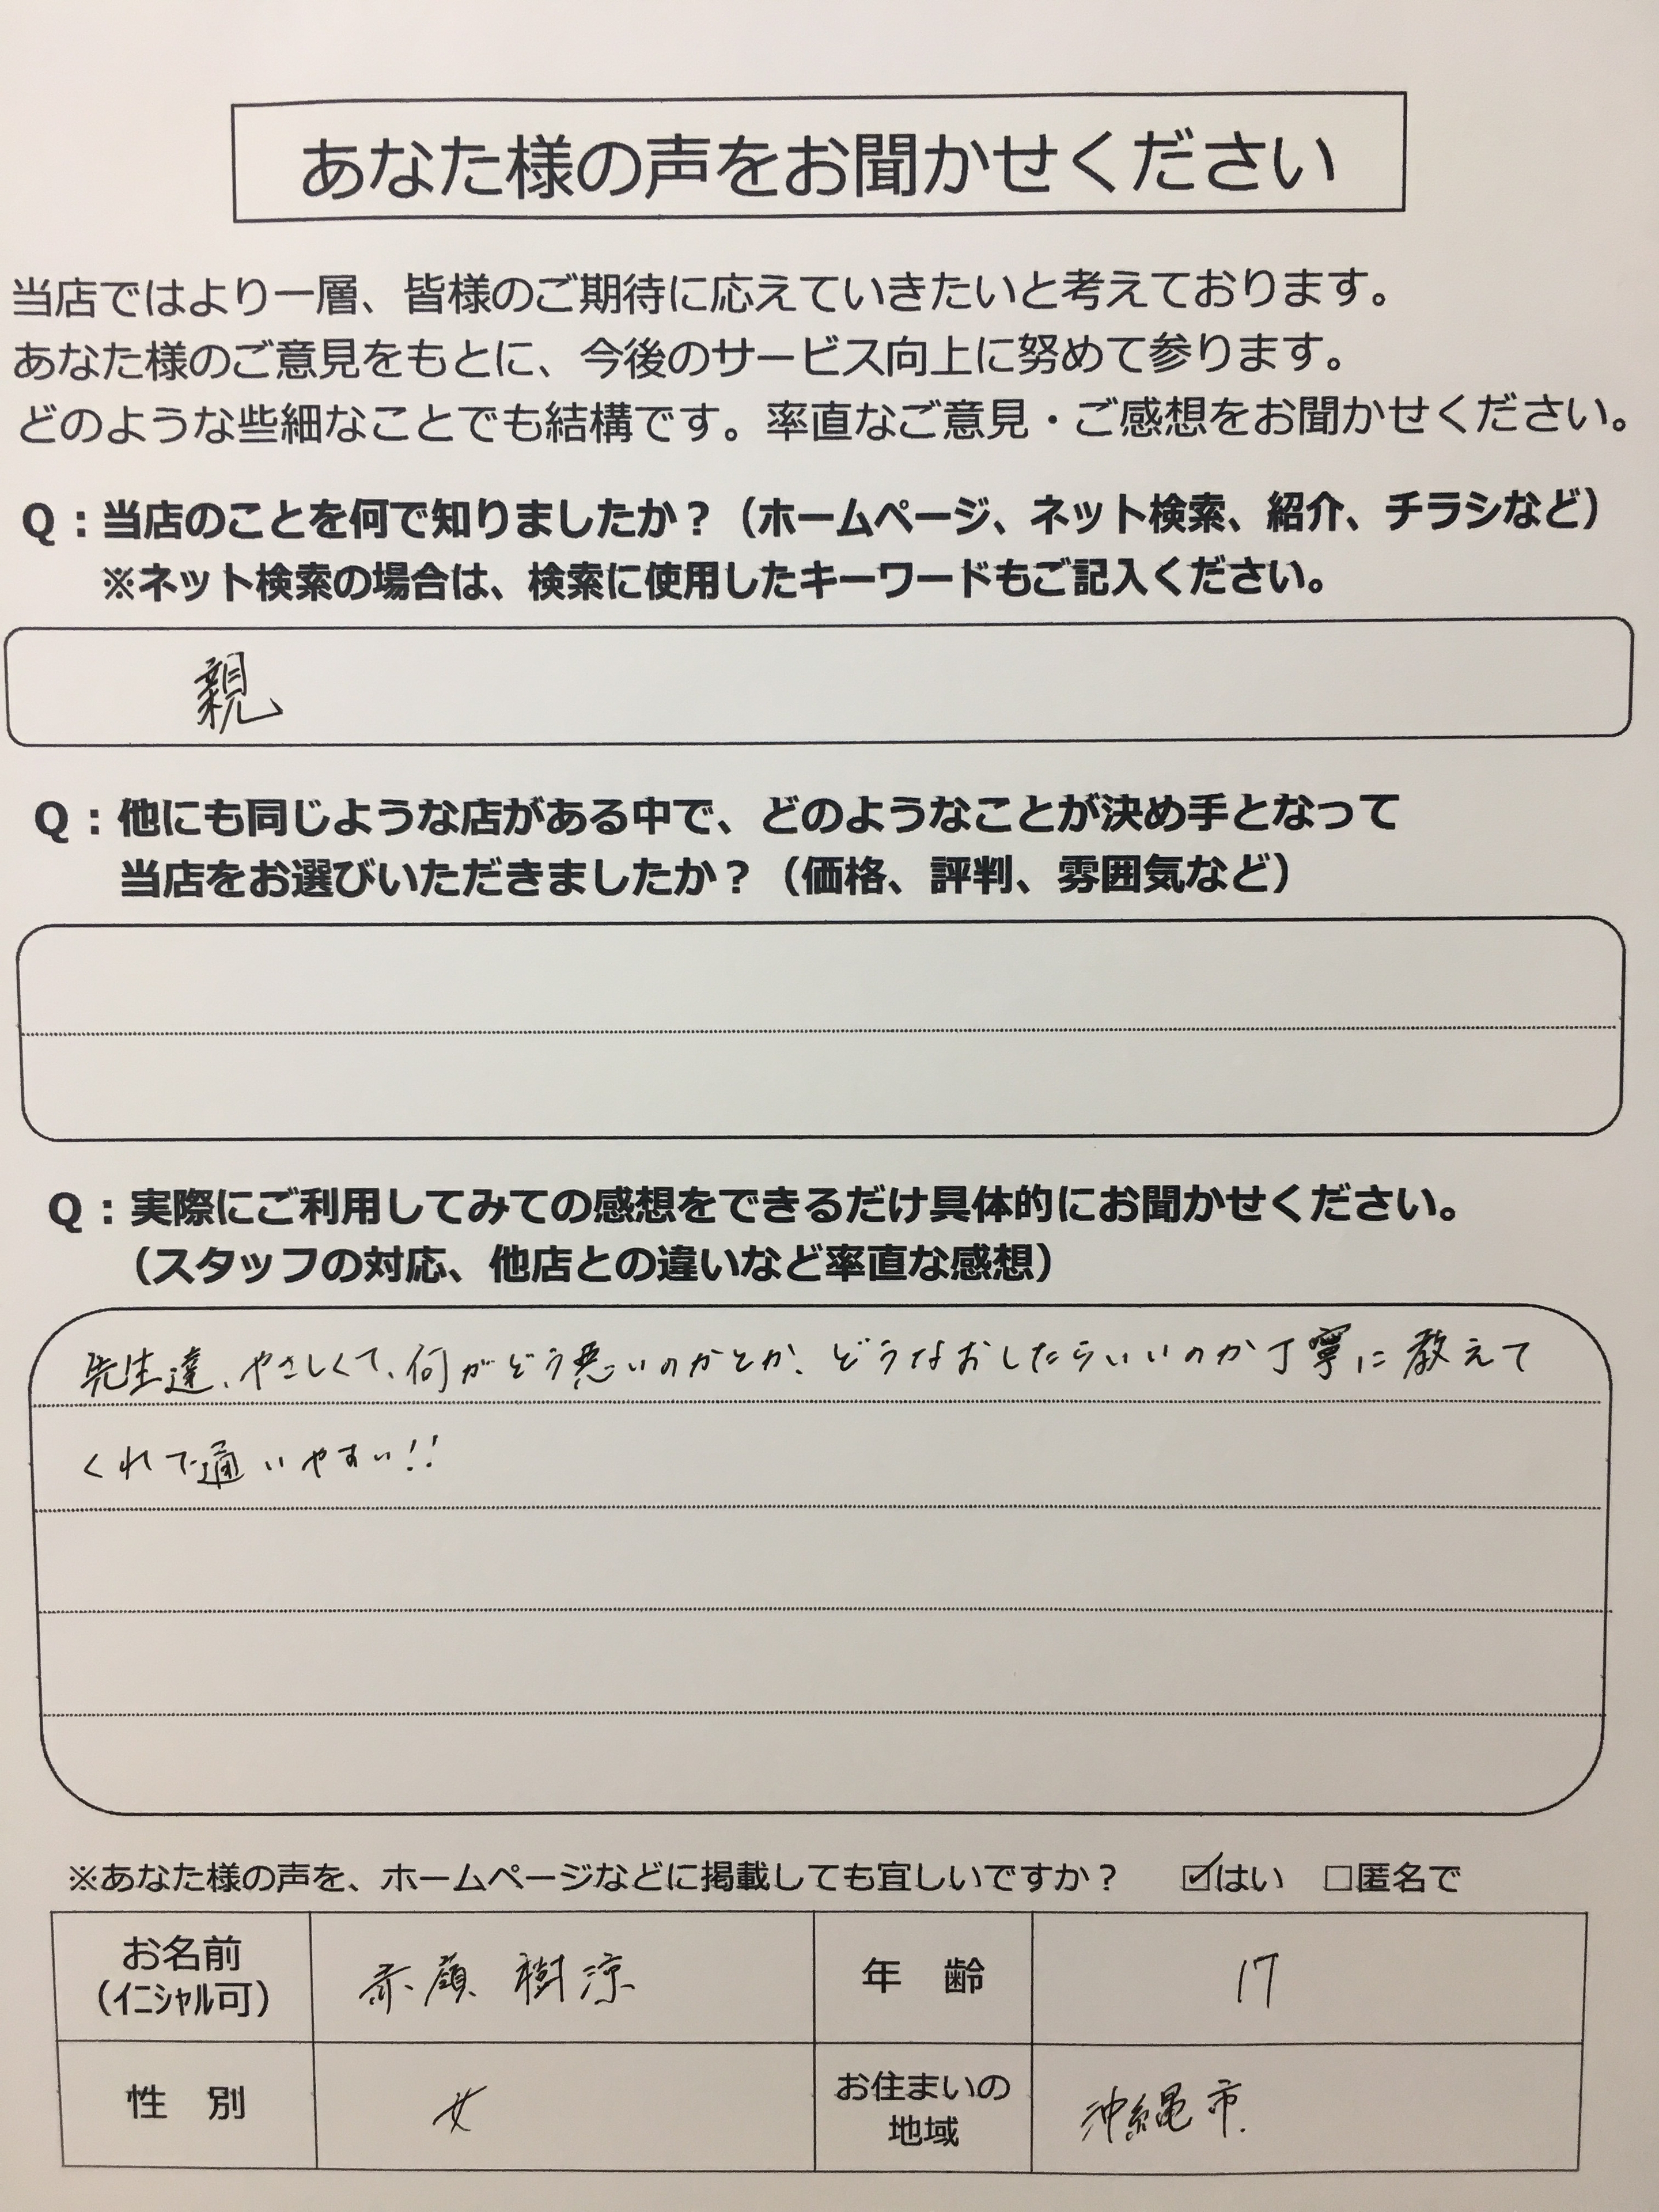 あなた様の声をお聞かせください
当店ではより一層、皆様のご期待に応えていきたいと考えております。
あなた様のご意見をもとに、今後のサービス向上に努めて参ります。
どのような些細なことでも結構です。率直なご意見・ご感想をお聞かせください。
Q：当店のことを何で知りましたか？（ホームページ、ネット検索、紹介、チラシなど）
※ネット検索の場合は、検索に使用したキーワードもご記入ください。
親
Q：他にも同じような店がある中で、どのようなことが決め手となって
当店をお選びいただきましたか？（価格、評判、雰囲気など）
Q：実際にご利用してみての感想をできるだけ具体的にお聞かせください。
（スタッフの対応、他店との違いなど率直な感想）
先生達、やさしくて、何がどう悪いのかとか、どうなおしたらいいのか丁寧に教えて
くれて通いやすい!!
※あなた様の声を、ホームページなどに掲載しても宜しいですか？ ☑はい □匿名で
お名前
（ｲﾆｼｬﾙ可） 赤嶺 樹涼 年 齢 17
性 別 女 お住まいの
地域 沖縄市.